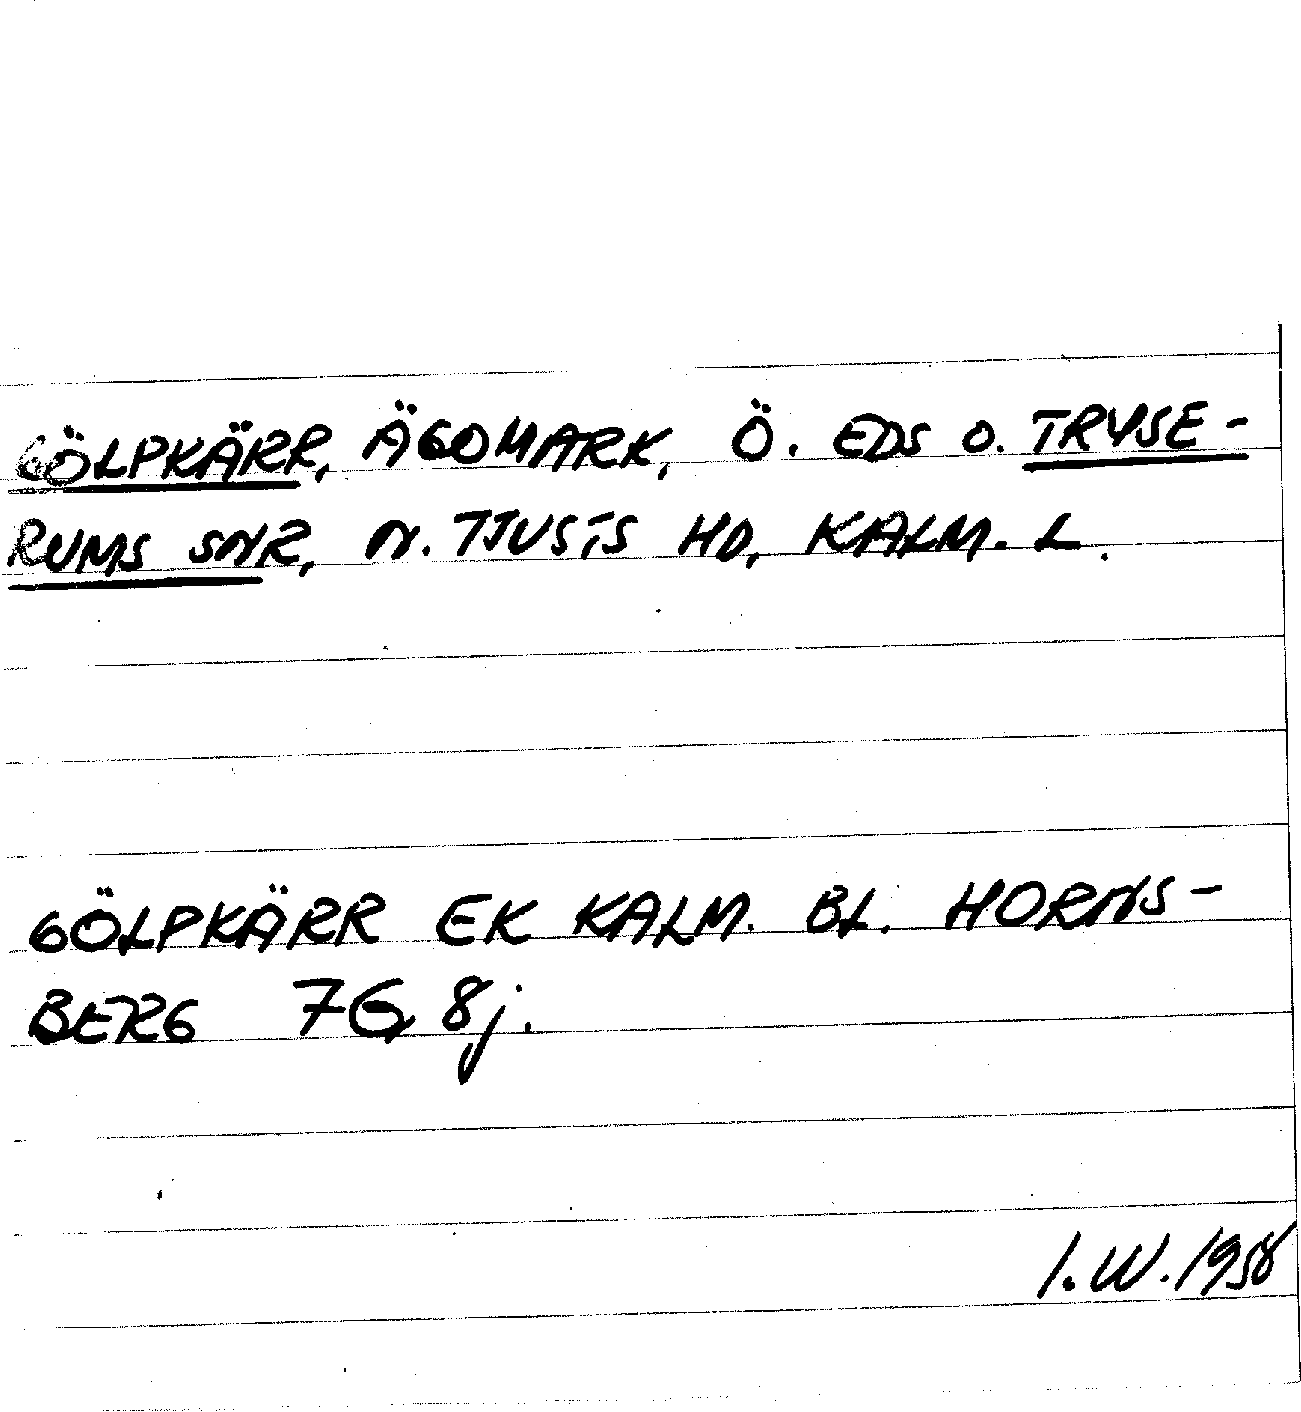 GÖLPKÄRR, ÄGOMARK, Ö. EDS O. TRYSE-
RUMS SNR, N. TJUSTS HD, KALM. L.
GÖLPKÄRR EK KALM. BL. HORNS-
BERG 7G 8j.
I.W. 1958